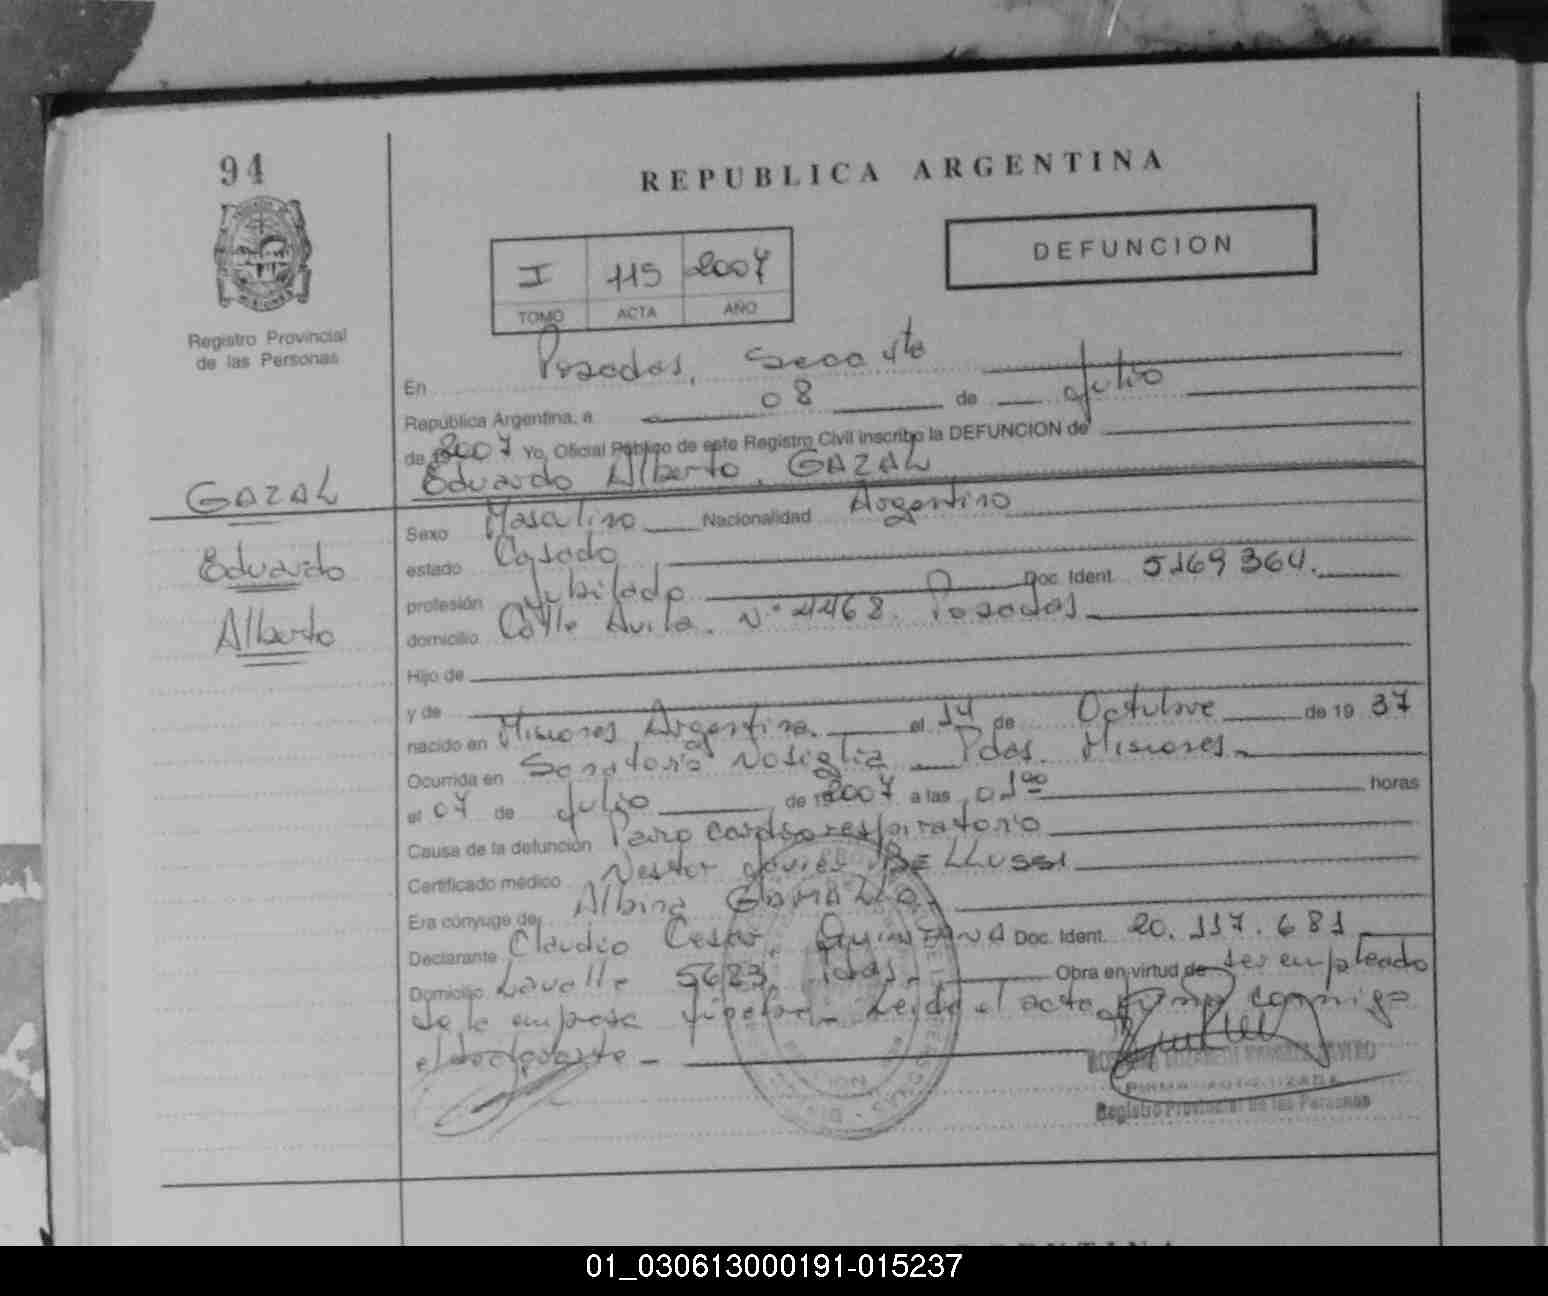 94
REPUBLICA ARGENTINA
Registro Provincial
de las Personas
I 115 2007
TOMO ACTA AÑO
DEFUNCION
En Posadas, Secc 4ta
República Argentina, a 08 de Julio
de 2007 Yo, Oficial Público de este Registro Civil inscribo la DEFUNCION de
Eduardo Alberto. GAZAL
GAZAL
Eduardo
Alberto
Sexo Masculino Nacionalidad Argentino
estado Casado
profesión Jubilado Doc. Ident. 5169364.
domicilio Calle Avila. N° 4468. Posadas
Hijo de
y de
nacido en Misiones Argentina. el 14 de Octubre de 19 37
Ocurrida en Sanatorio Nosiglia Pdas. Misiones
el 07 de Julio de 2007 a las 01 00 horas
Causa de la defunción Paro cardiorespiratorio
Certificado médico Nestor Javier BELLUSSI
Era cónyuge de Albina
Declarante Claudio Cesar. QUINTANA Doc. Ident. 20.117.681
Domicilio Lavalle 5623. Pdas. Obra en virtud de ser empleado
de la empresa Leida el acta firma conmigo
el declarante
FIRMA AUTORIZADA
Registro Provincial de las Personas
01_030613000191-015237